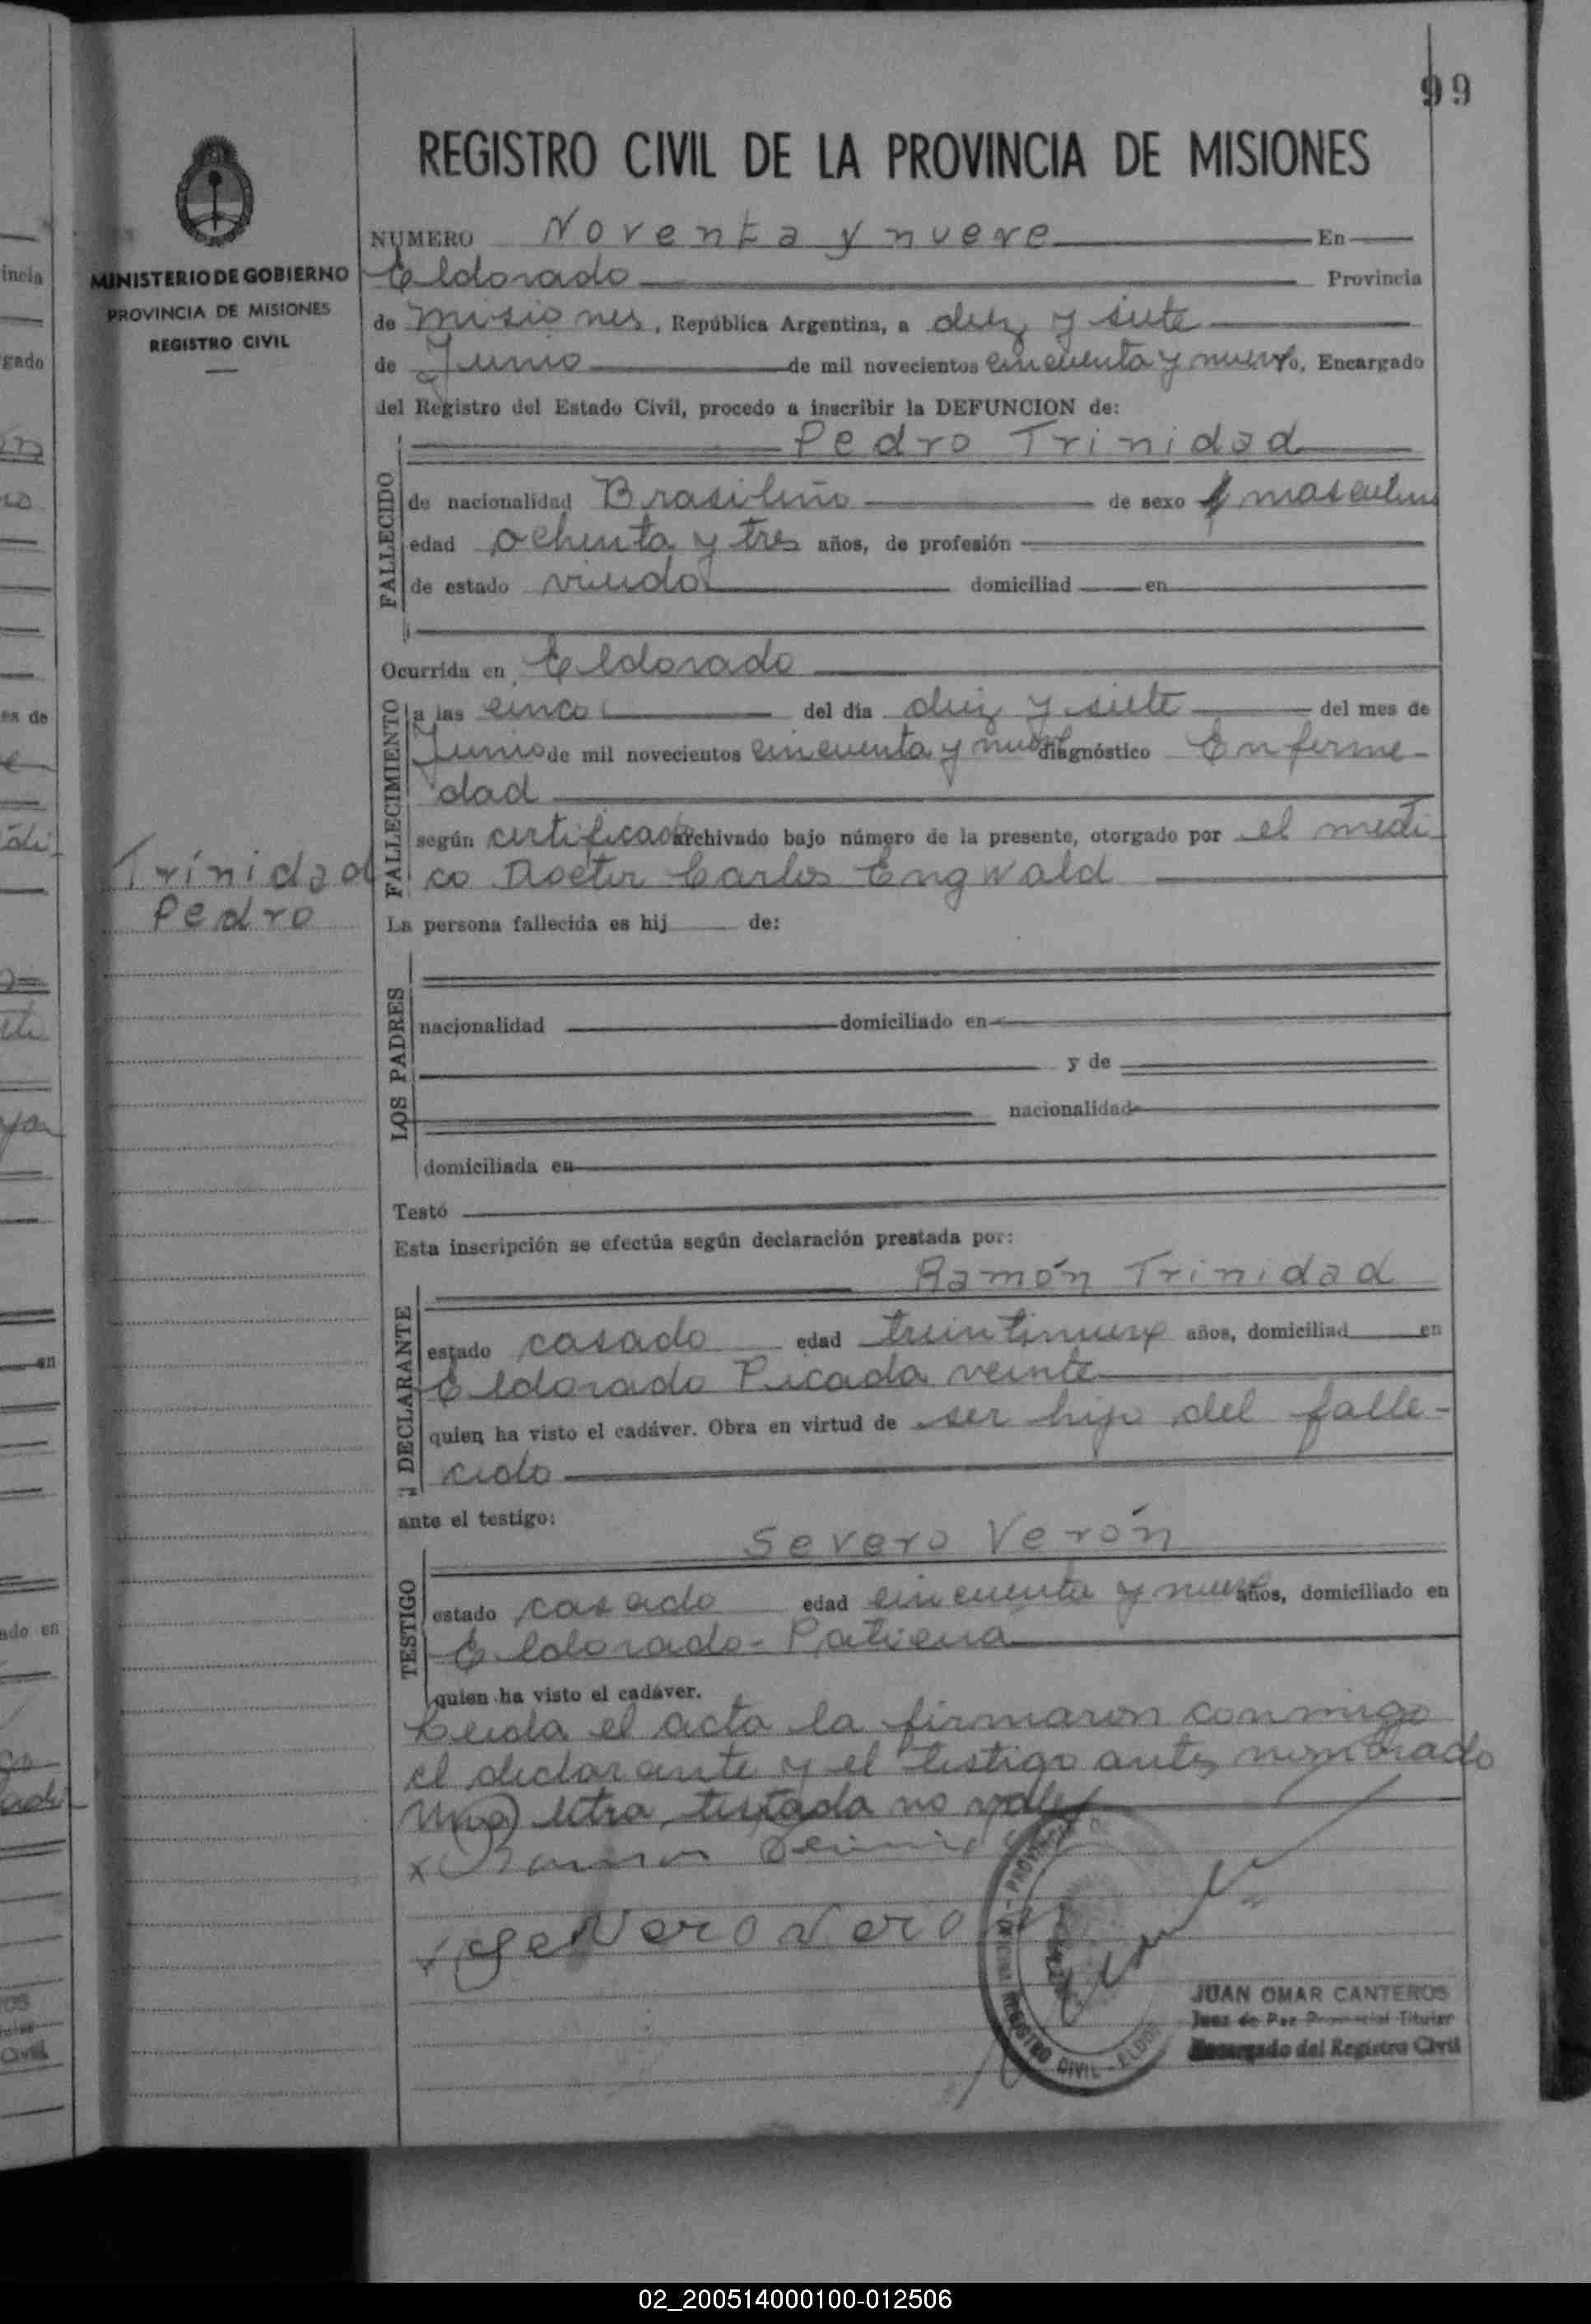 99
REGISTRO CIVIL DE LA PROVINCIA DE MISIONES
MINISTERIO DE GOBIERNO
PROVINCIA DE MISIONES
REGISTRO CIVIL
NUMERO Noventa y nueve En
Eldorado Provincia
de Misiones, República Argentina, a diez y siete
de Junio de mil novecientos cincuenta y nueve yo, Encargado
del Registro del Estado Civil, procedo a inscribir la DEFUNCION de:
Pedro Trinidad
FALLECIDO
de nacionalidad Brasileño de sexo masculino
edad ochenta y tres años, de profesión
de estado viudo domiciliad en
Ocurrida en Eldorado
FALLECIMIENTO
a las cinco del día diez y siete del mes de
Junio de mil novecientos cincuenta y nueve diagnóstico Enferme-
dad
según certificado archivado bajo número de la presente, otorgado por el médi-
co Doctor Carlos Engwald
Trinidad
Pedro
La persona fallecida es hij de:
LOS PADRES
nacionalidad domiciliado en
y de
nacionalidad
domiciliada en
Testó
Esta inscripción se efectúa según declaración prestada por:
Ramón Trinidad
DECLARANTE
estado casado edad treintinueve años, domiciliad en
Eldorado Picada veinte
quien ha visto el cadáver. Obra en virtud de ser hijo del falle-
cido
ante el testigo:
Severo Verón
TESTIGO
estado casado edad cincuenta y nueve años, domiciliado en
Eldorado-
quien ha visto el cadáver.
Leida el acta la firmaron conmigo
el declarante y el testigo antes nombrado
Una letra testada no vale
x Ramon
x Severo Vero
REGISTRO CIVIL - ELDO
JUAN OMAR CANTEROS
Juez de Paz Provincial Titular
Encargado del Registro Civil
02_200514000100-012506